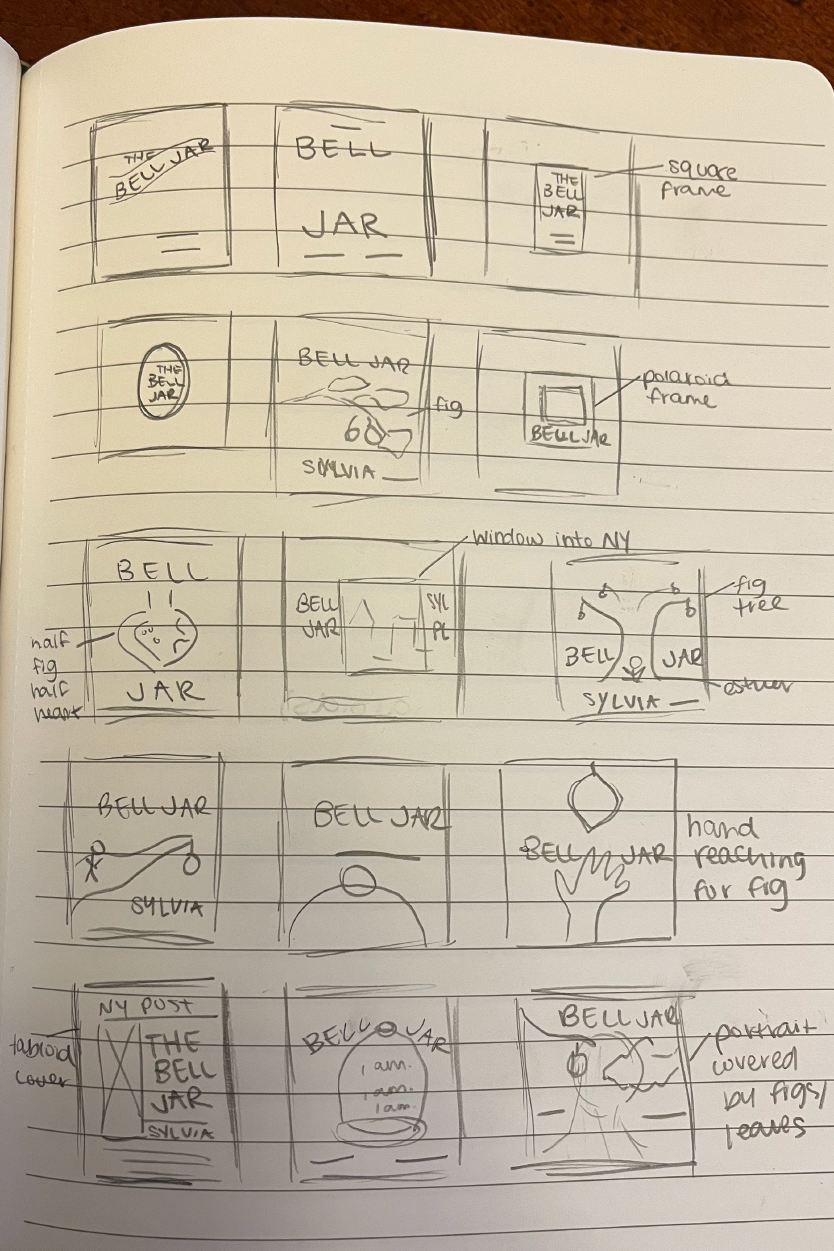 THE
BELL JAR
BELL
JAR
THE
BELL
JAR
square
frame
THE
BELL
JAR
BELL JAR
fig
SYLVIA
polaroid
frame
BELL JAR
BELL
half
fig
half
heart
JAR
window into NY
BELL
JAR
SYL
PL
fig
tree
BELL
JAR
esther
SYLVIA
BELL JAR
SYLVIA
BELL JAR
BELL JAR
hand
reaching
for fig
NY POST
tabloid
cover
THE
BELL
JAR
SYLVIA
BELL JAR
I am.
I am.
I am.
BELL JAR
portrait
covered
by figs/
leaves